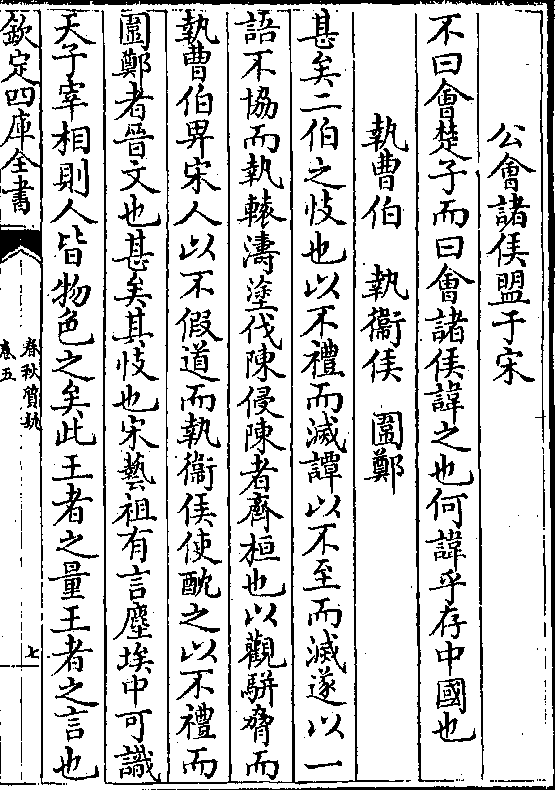 公會諸侯盟于宋
不曰會楚子而曰會諸侯諱之也何諱乎存中國也
執曹伯 執衛侯 圍鄭
甚矣二伯之忮也以不禮而滅譚以不至而滅遂以一
語不協而執轅濤塗伐陳侵陳者齊桓也以觀駢脅而
執曹伯畀宋人以不假道而執衛侯使酖之以不禮而
圍鄭者晉文也甚矣其忮也宋藝祖有言塵埃中可識
天子宰相則人皆物色之矣此王者之量王者之言也
欽定四庫全書
春秋質疑
卷五
七